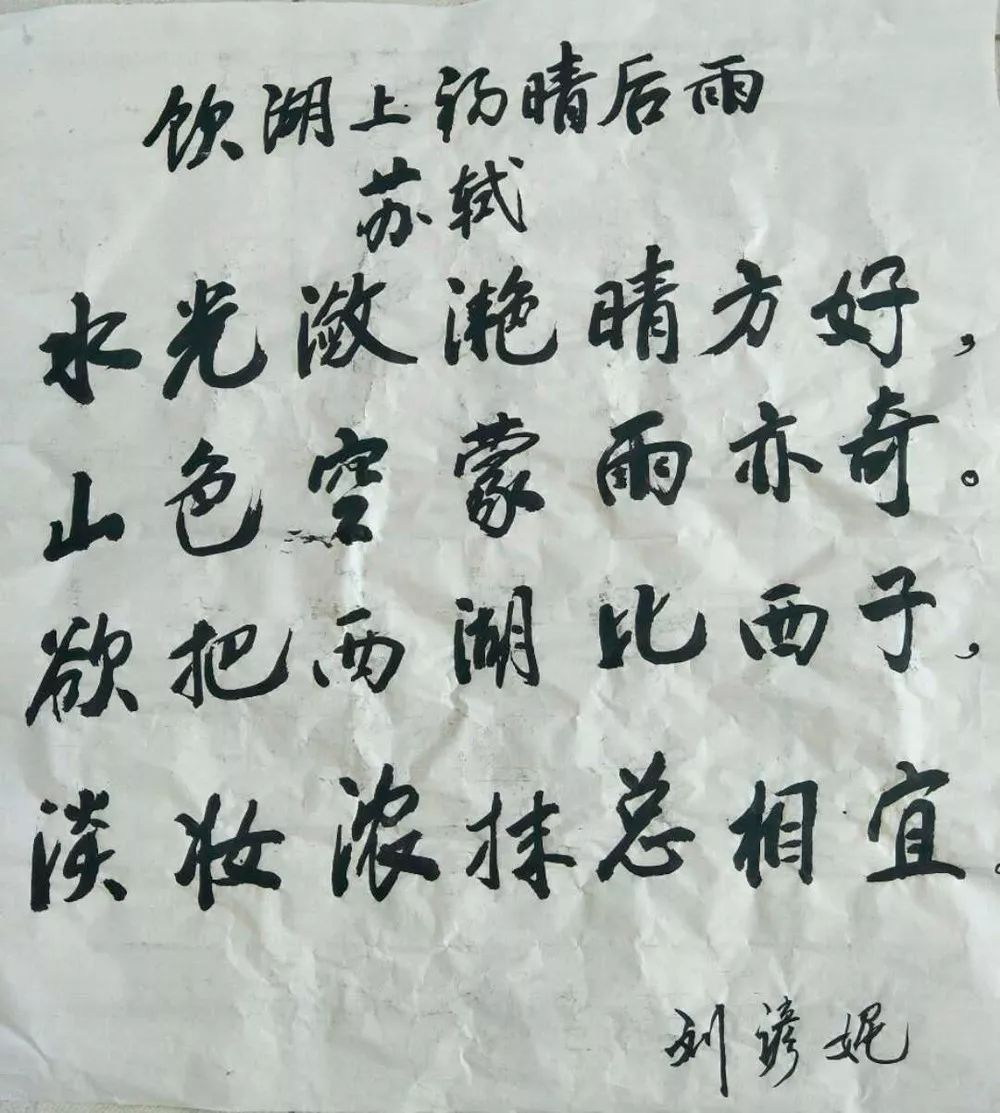 饮湖上初晴后雨
苏轼
水光潋滟晴方好，
山色空蒙雨亦奇。
欲把西湖比西子，
淡妆浓抹总相宜。
刘谚妮